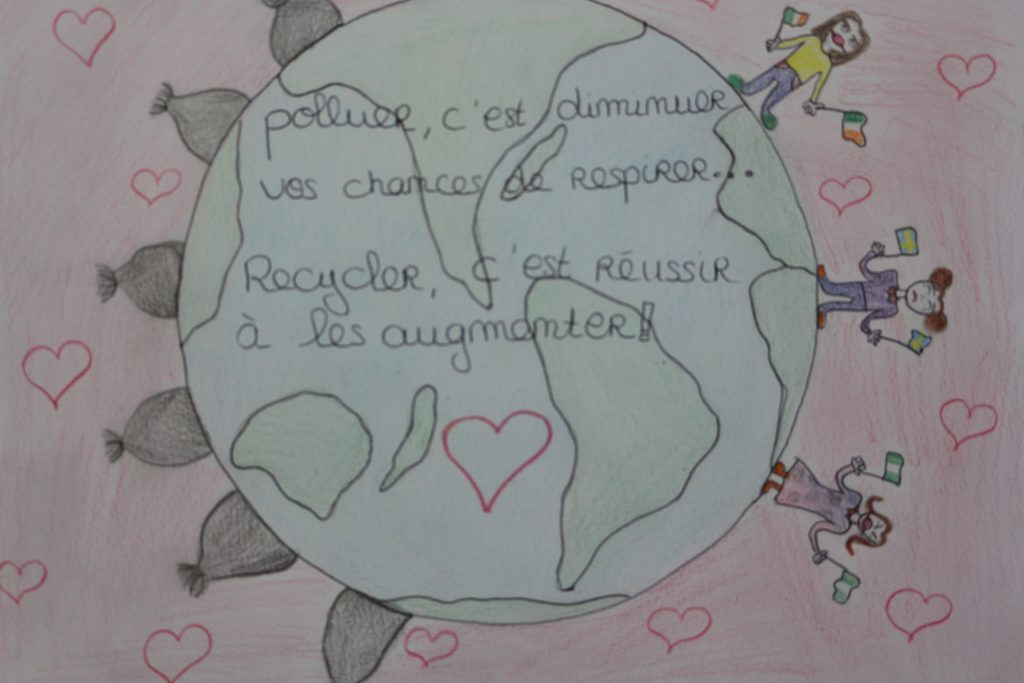 polluer, c'est diminuer
vos chances de respirer...
Recycler, c'est réussir
à les augmenter!!